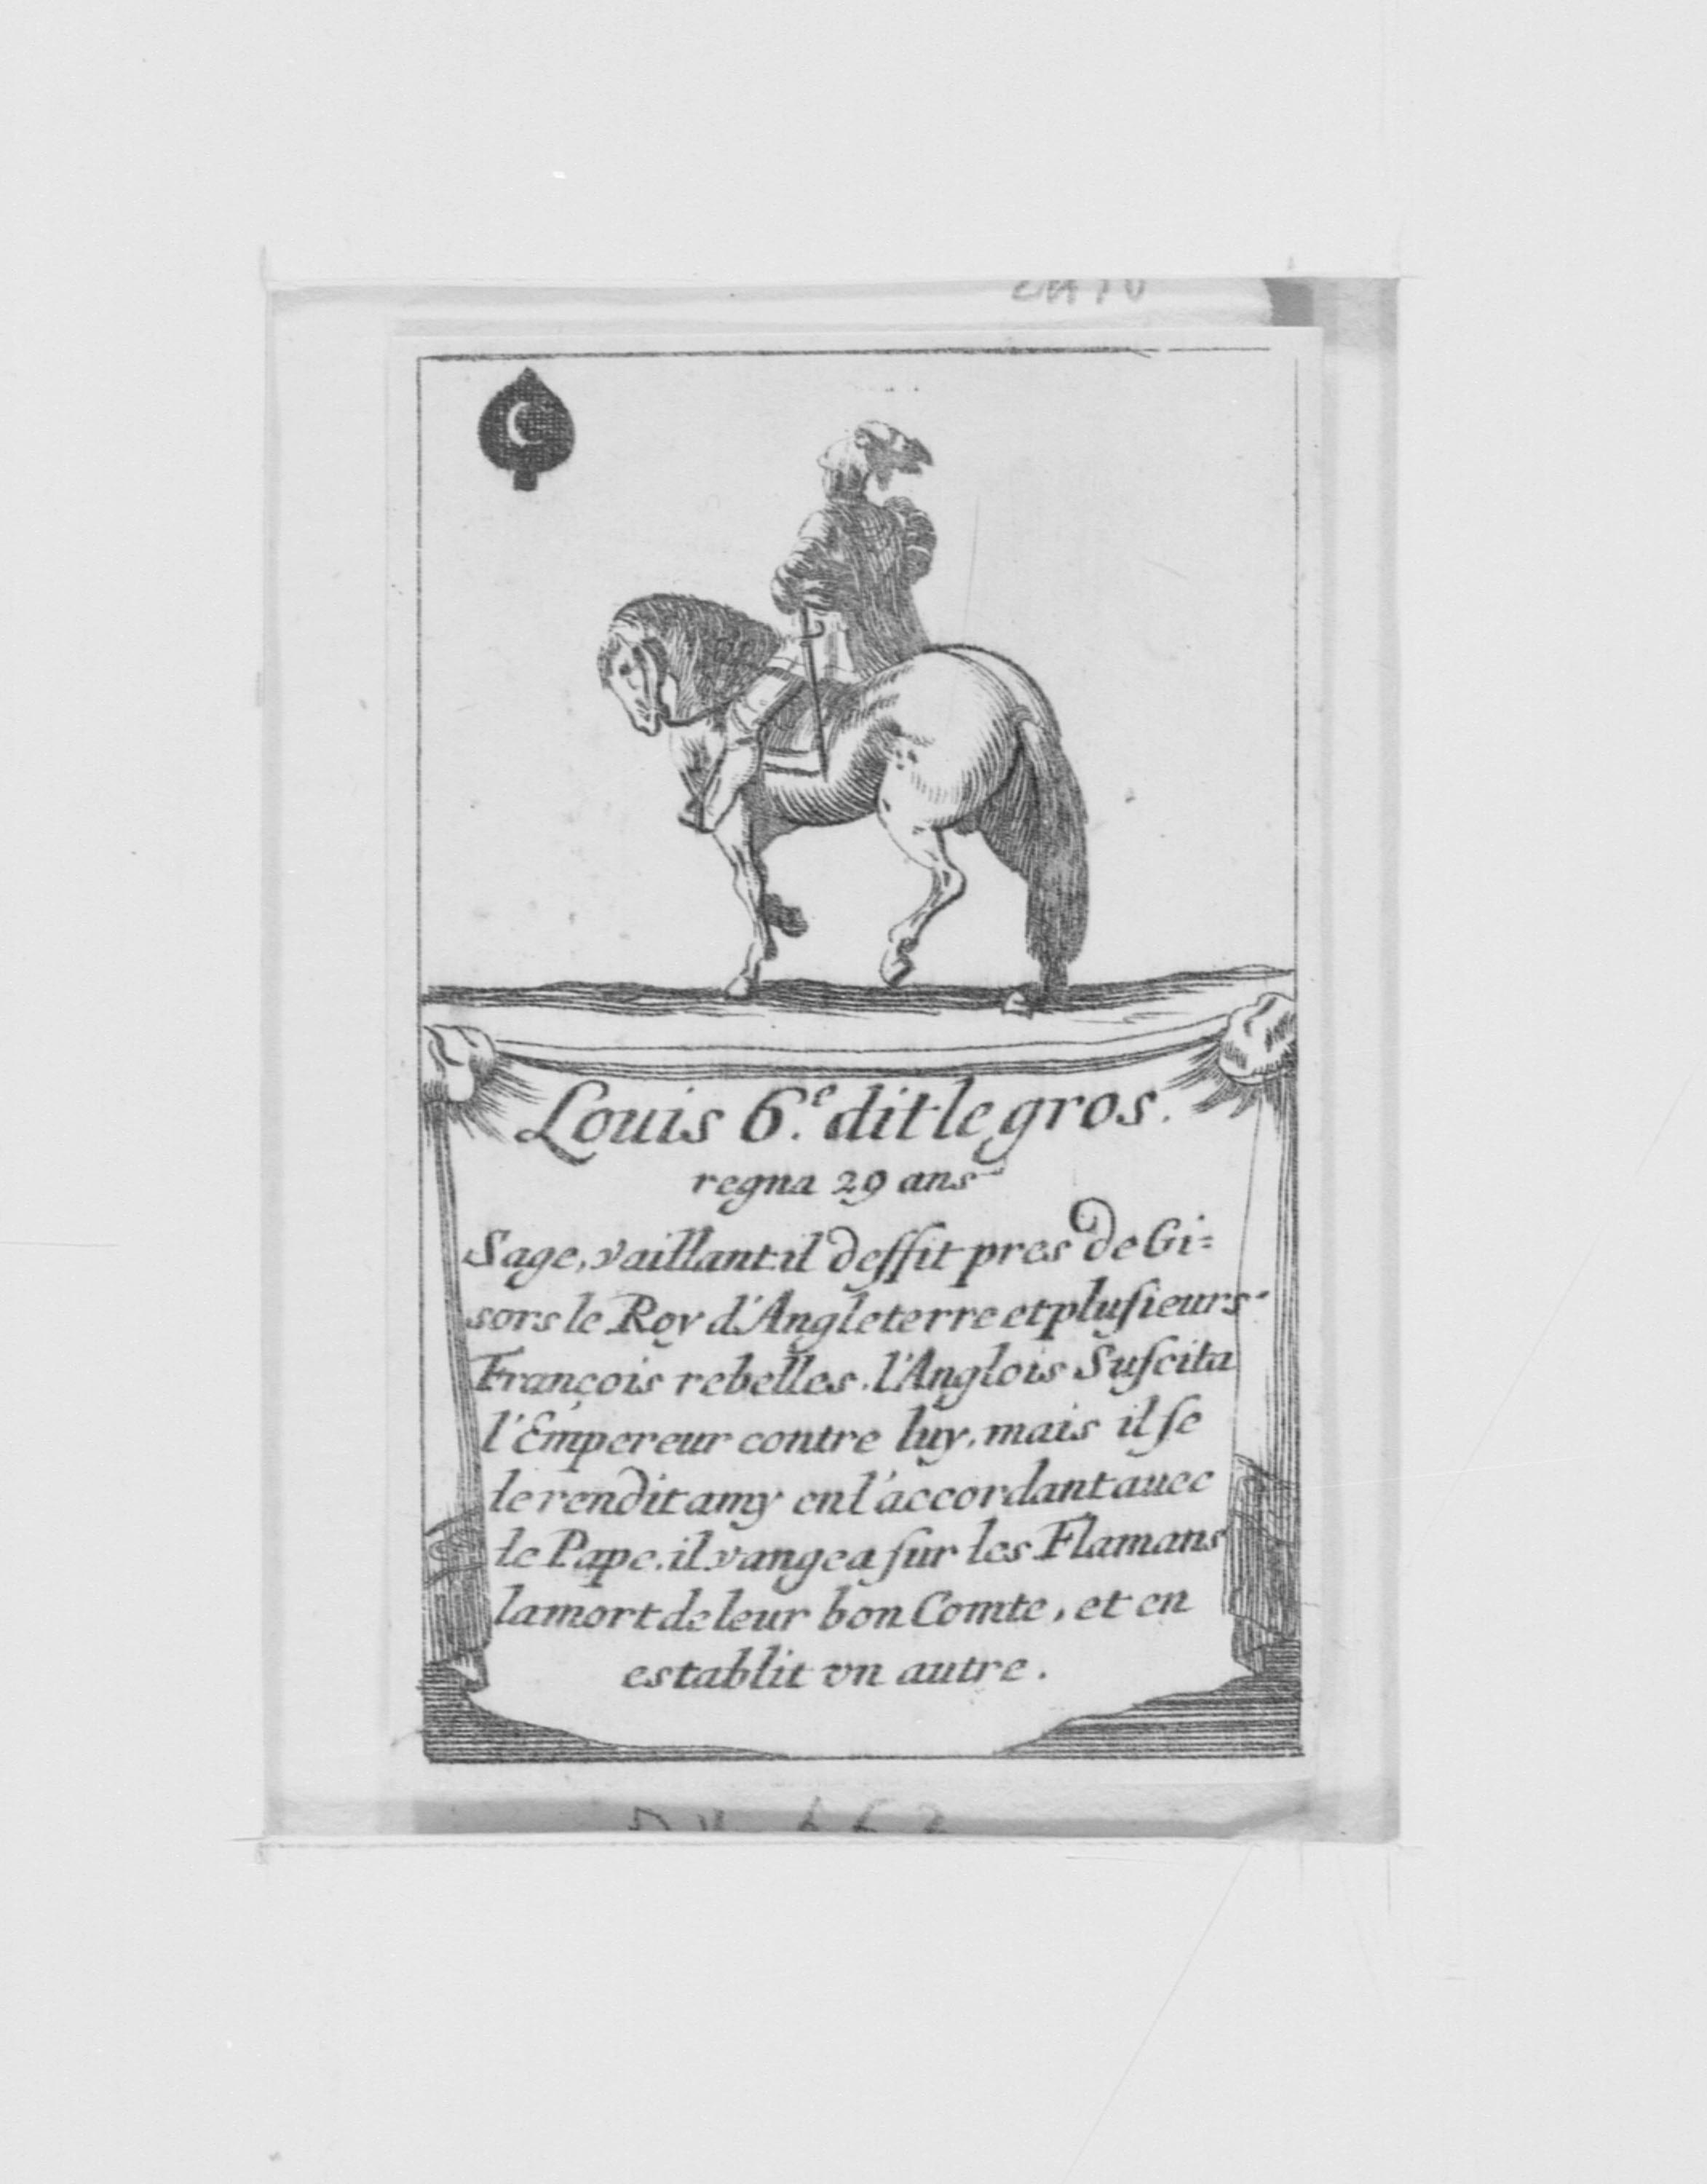 C
Louis 6.e dit le gros.
regna 29 ans
Sage, vaillant il deffit pres de Gi=
sors le Roy d'Angleterre et plusieurs
François rebelles. l'Anglois Suscita
l'Empereur contre luy, mais il se
le rendit amy en l'accordant auec
le Pape. il vangea sur les Flamans
la mort de leur bon Comte, et en
establit vn autre.